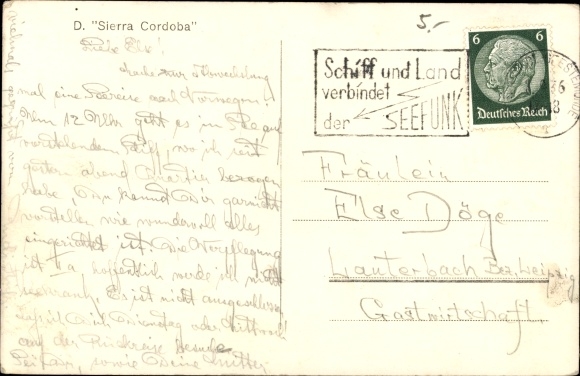 D. "Sierra Cordoba"
5.-
Liebe Else!
mal eine Seereise nach Norwegen.
12 Uhr geht es in See auf
Schiff, wo ich seit
gestern abend Quartier bezogen
habe. Du kannst Dir gar nicht
vorstellen wie wundervoll alles
eingerichtet ist. Die Verpflegung
ist Ia, hoffentlich werde ich nicht
seekrank. Es ist nicht ausgeschlossen
Dienstag oder Mittwoch
auf der Rückreise besuche
sowie Deine Mutter
Schiff und Land
verbindet
der SEEFUNK
6 6
Deutsches Reich
Fräulein
Else Döge
Lauterbach Bez. Leipzig
Gastwirtschaft.